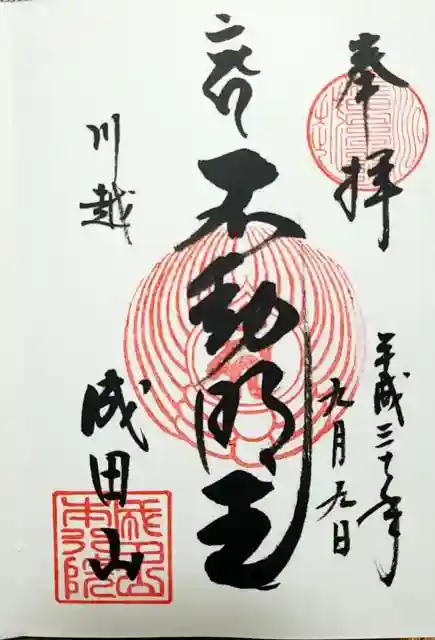 奉拝
平成三十年
九月九日
不動明王
川越
成田山
成田山
本行院